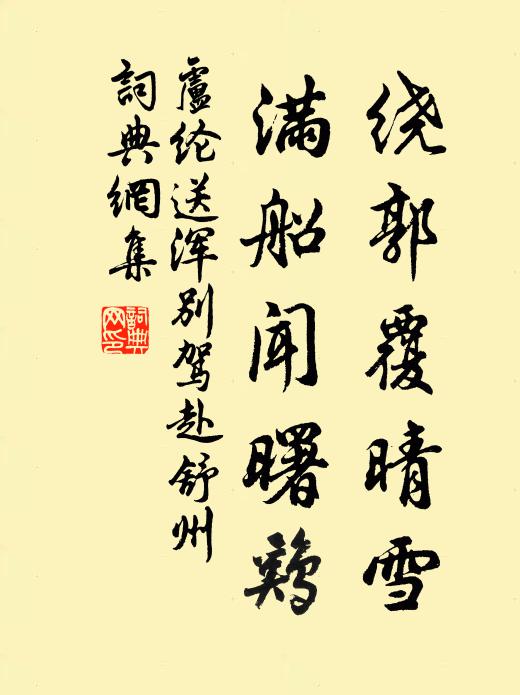 绕郭覆晴雪
满船闻曙鷄
盧纶送浑别驾赴舒州
詞典網集
詞典网印